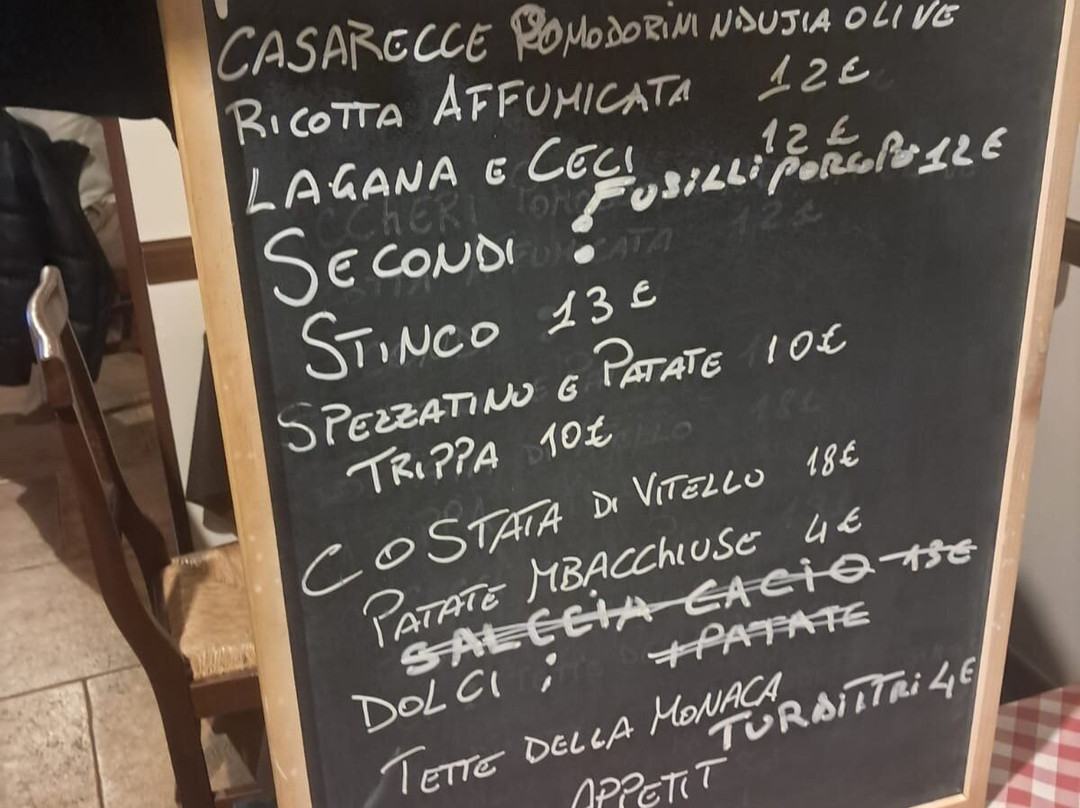 CASARECCE POMODORINI NDUJIA OLIVE
RICOTTA AFFUMICATA 12€
LAGANA E CECI 12€
FUSILLI PORCOPO 12€
SECONDI :
STINCO 13€
SPEZZATINO E PATATE 10€
TRIPPA 10€
COSTATA DI VITELLO 18€
PATATE MBACCHIUSE 4€
SALCCIA CACIO 13€
+PATATE
DOLCI :
TETTE DELLA MONACA
TURDILLTRI 4€
APPETIT